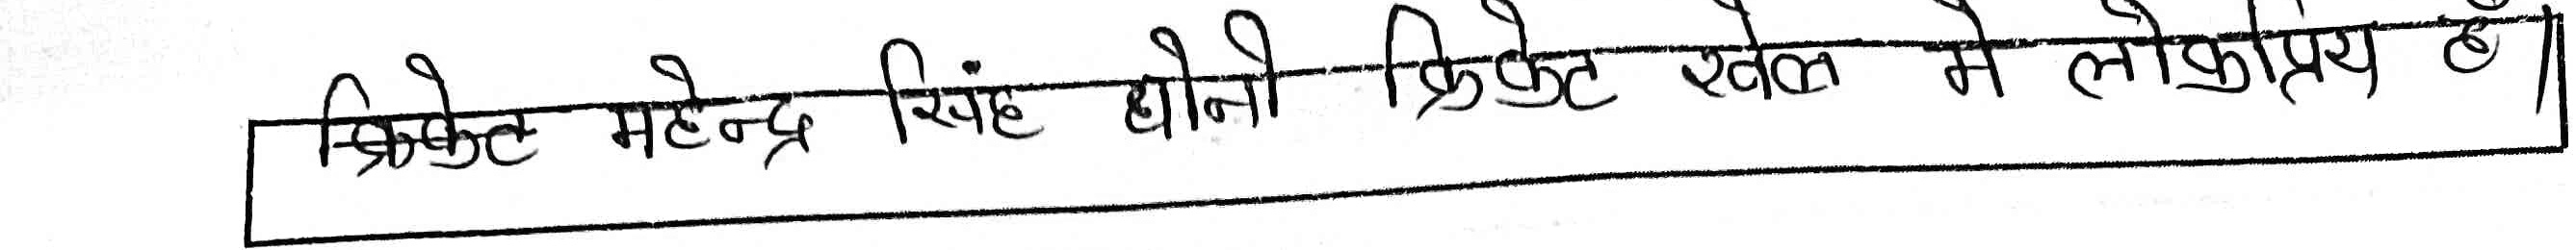 क्रिकेट महेन्द्र सिंह धोनी क्रिकेट खेल मे लोकप्रिय है।